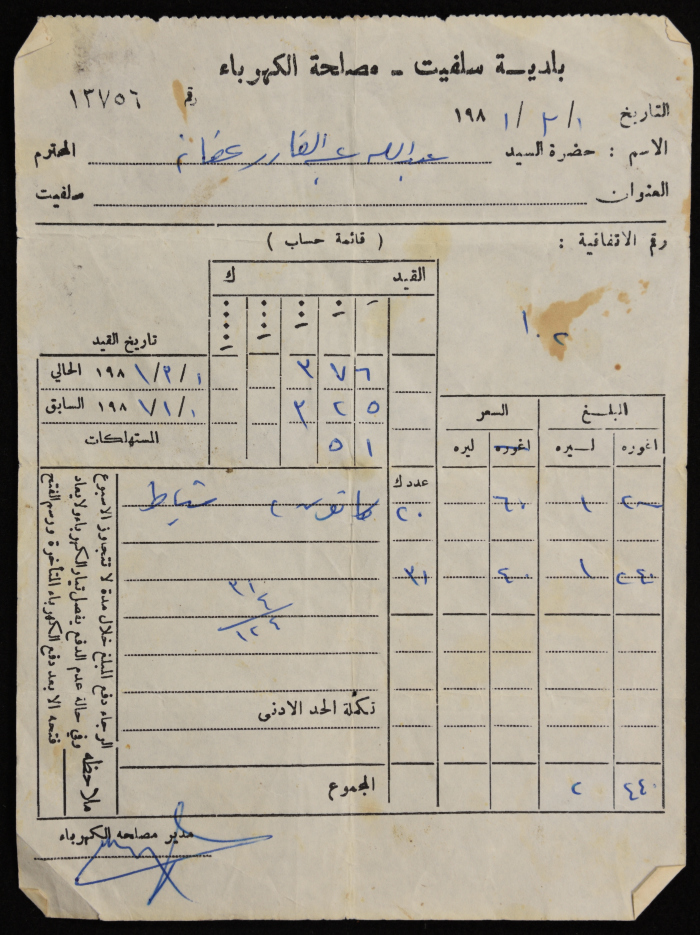 بلديـــة سلفيت ــ مصلحة الكهرباء
رقم ١٣٧٥٦
التاريخ ١ / ٢ / ١ ١٩٨
الاسم : حضرة السيد عبدالله عبد القادر عفانه المحترم
العنوان سلفيت
رقم الاتفاقية :
( قائمة حساب )
١٠٢
القيد ك
١ ١٠ ١٠٠ ١٠٠٠ ١٠٠٠٠
تاريخ القيد
٣ ٧ ٦ الحالي ١٩٨ ١/٢/١
٣ ٢ ٥ السابق ١٩٨ ١/١/١
٥ ١ المستهلكات
المبلـــغ السعر
اغوره لـــيره اغوره ليره عدد ك
٢٠٠ ١ ٦٠ ٢٠ كانون ٢ شباط
٢٤٠ ١ ٤٠ ٣١
تكملة الحد الادنى
٤٤٠ ٢ المجموع
ملاحظه
الرجاء دفع المبلغ خلال مدة لا تتجاوز الاسبوع
وفي حالة عدم الدفع يفصل تيار الكهرباء ولا يعاد
فتحه الا بعد دفع الكهرباء المتأخرة ورسم الفتح
مدير مصلحة الكهرباء